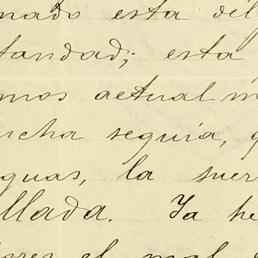 nado esta del
tandad; esta
mos actual m
ucha seguia, q
guas, la suer
llada. Ya he
ores el mal